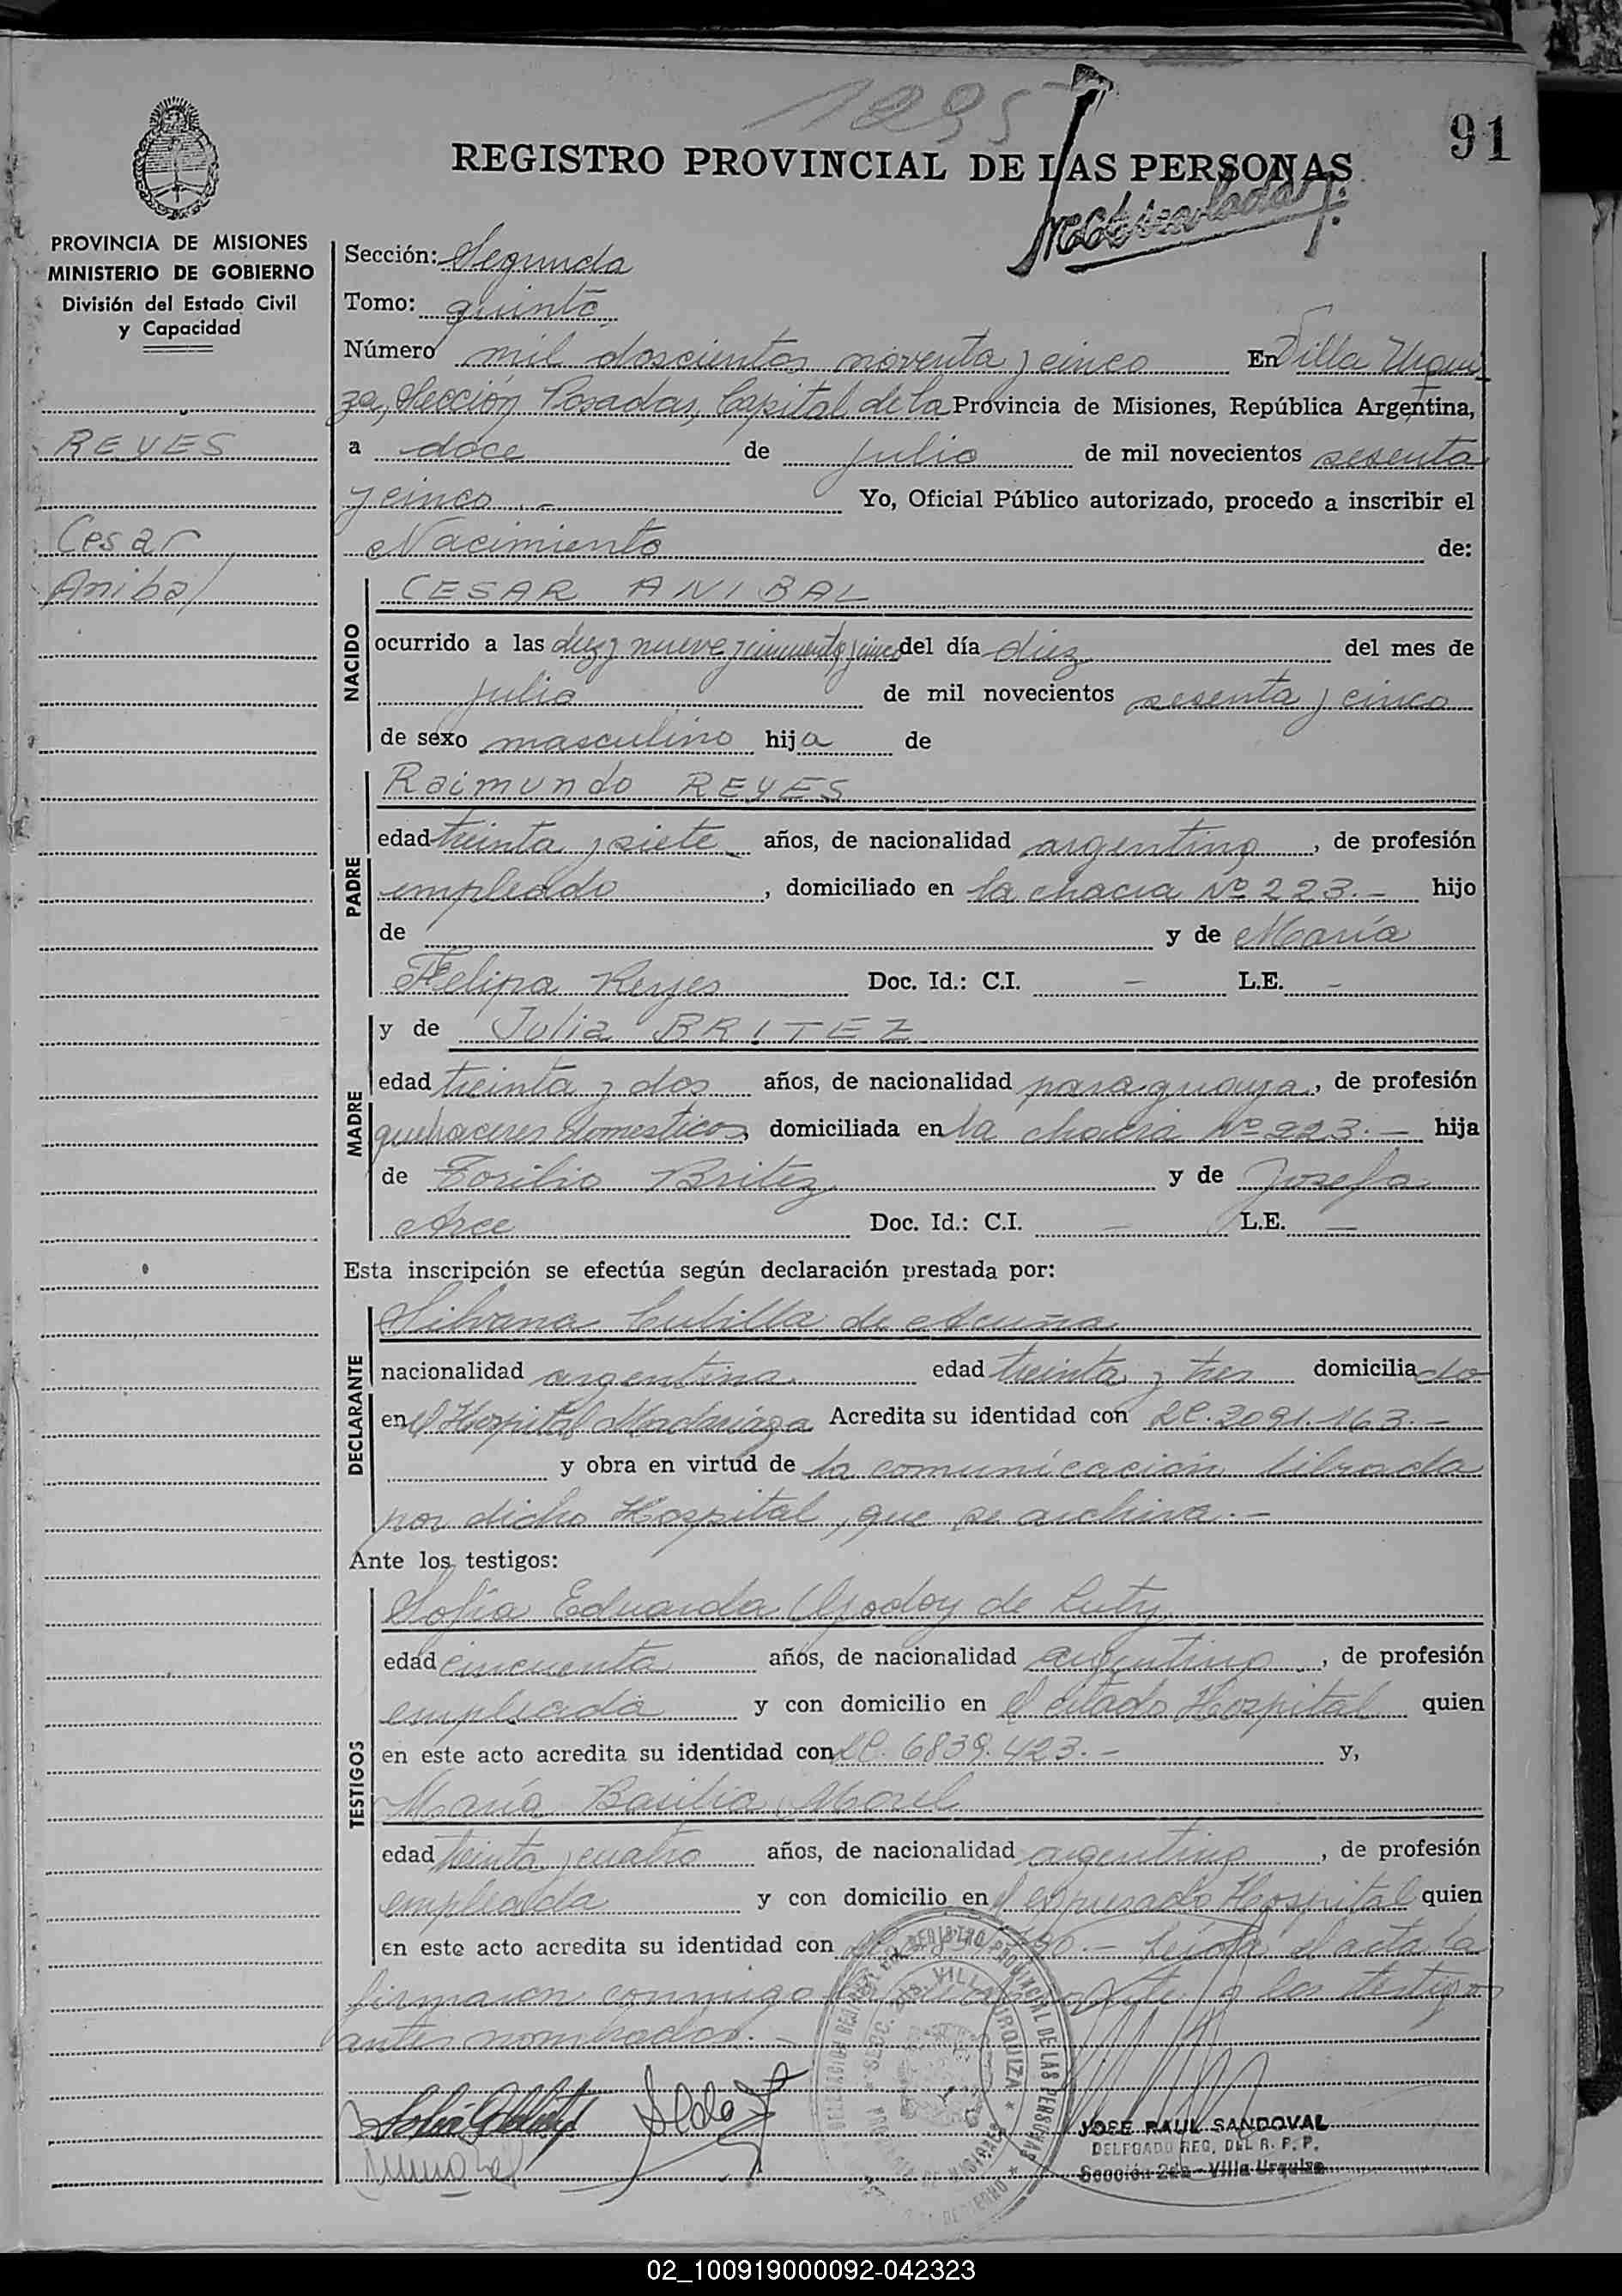 1295
91
REGISTRO PROVINCIAL DE LAS PERSONAS
PROVINCIA DE MISIONES
MINISTERIO DE GOBIERNO
División del Estado Civil
y Capacidad
REYES
Cesar
Anibal
Sección: Segunda
Tomo: quinto
Número mil doscientos noventa y cinco En Villa Urqui
za, Sección Posadas, Capital de la Provincia de Misiones, República Argentina,
a doce de julio de mil novecientos sesenta
y cinco.- Yo, Oficial Público autorizado, procedo a inscribir el
Nacimiento de:
NACIDO
CESAR ANIBAL
ocurrido a las diez y nueve y cincuenta y cinco del día diez del mes de
julio de mil novecientos sesenta y cinco
de sexo masculino hija de
PADRE
Raimundo REYES
edad treinta y siete años, de nacionalidad argentina, de profesión
empleado, domiciliado en la chacra Nº 223.- hijo
de y de María
Felipa Reyes Doc. Id.: C.I. - L.E. -
MADRE
y de Julia BRITEZ
edad treinta y dos años, de nacionalidad paraguaya, de profesión
quehaceres domesticos, domiciliada en la chacra Nº 223.- hija
de Britez y de Josefa
Arce Doc. Id.: C.I. - L.E. -
Esta inscripción se efectúa según declaración prestada por:
DECLARANTE
Silvana Cubilla de Acuña
nacionalidad argentina edad treinta y tres domiciliado
en el Hospital Madariaga Acredita su identidad con LC. 2091.163.-
y obra en virtud de la comunicación librada
por dicho Hospital, que se archiva.-
Ante los testigos:
TESTIGOS
Sofía Eduarda Godoy de Luty
edad cincuenta años, de nacionalidad argentina, de profesión
empleada y con domicilio en el citado Hospital quien
en este acto acredita su identidad con LC. 6839.423.- y,
María Basilia Morel
edad treinta y cuatro años, de nacionalidad argentina, de profesión
empleada y con domicilio en el expresado Hospital quien
en este acto acredita su identidad con Leída el acta la
firmaron conmigo y los testigos
antes nombrados.-
REGISTRO PROVINCIAL DE LAS PERSONAS
VILLA URQUIZA
JOSE RAUL SANDOVAL
DELEGADO REG. DEL R. P. P.
Sección 2da - Villa Urquiza
02_100919000092-042323